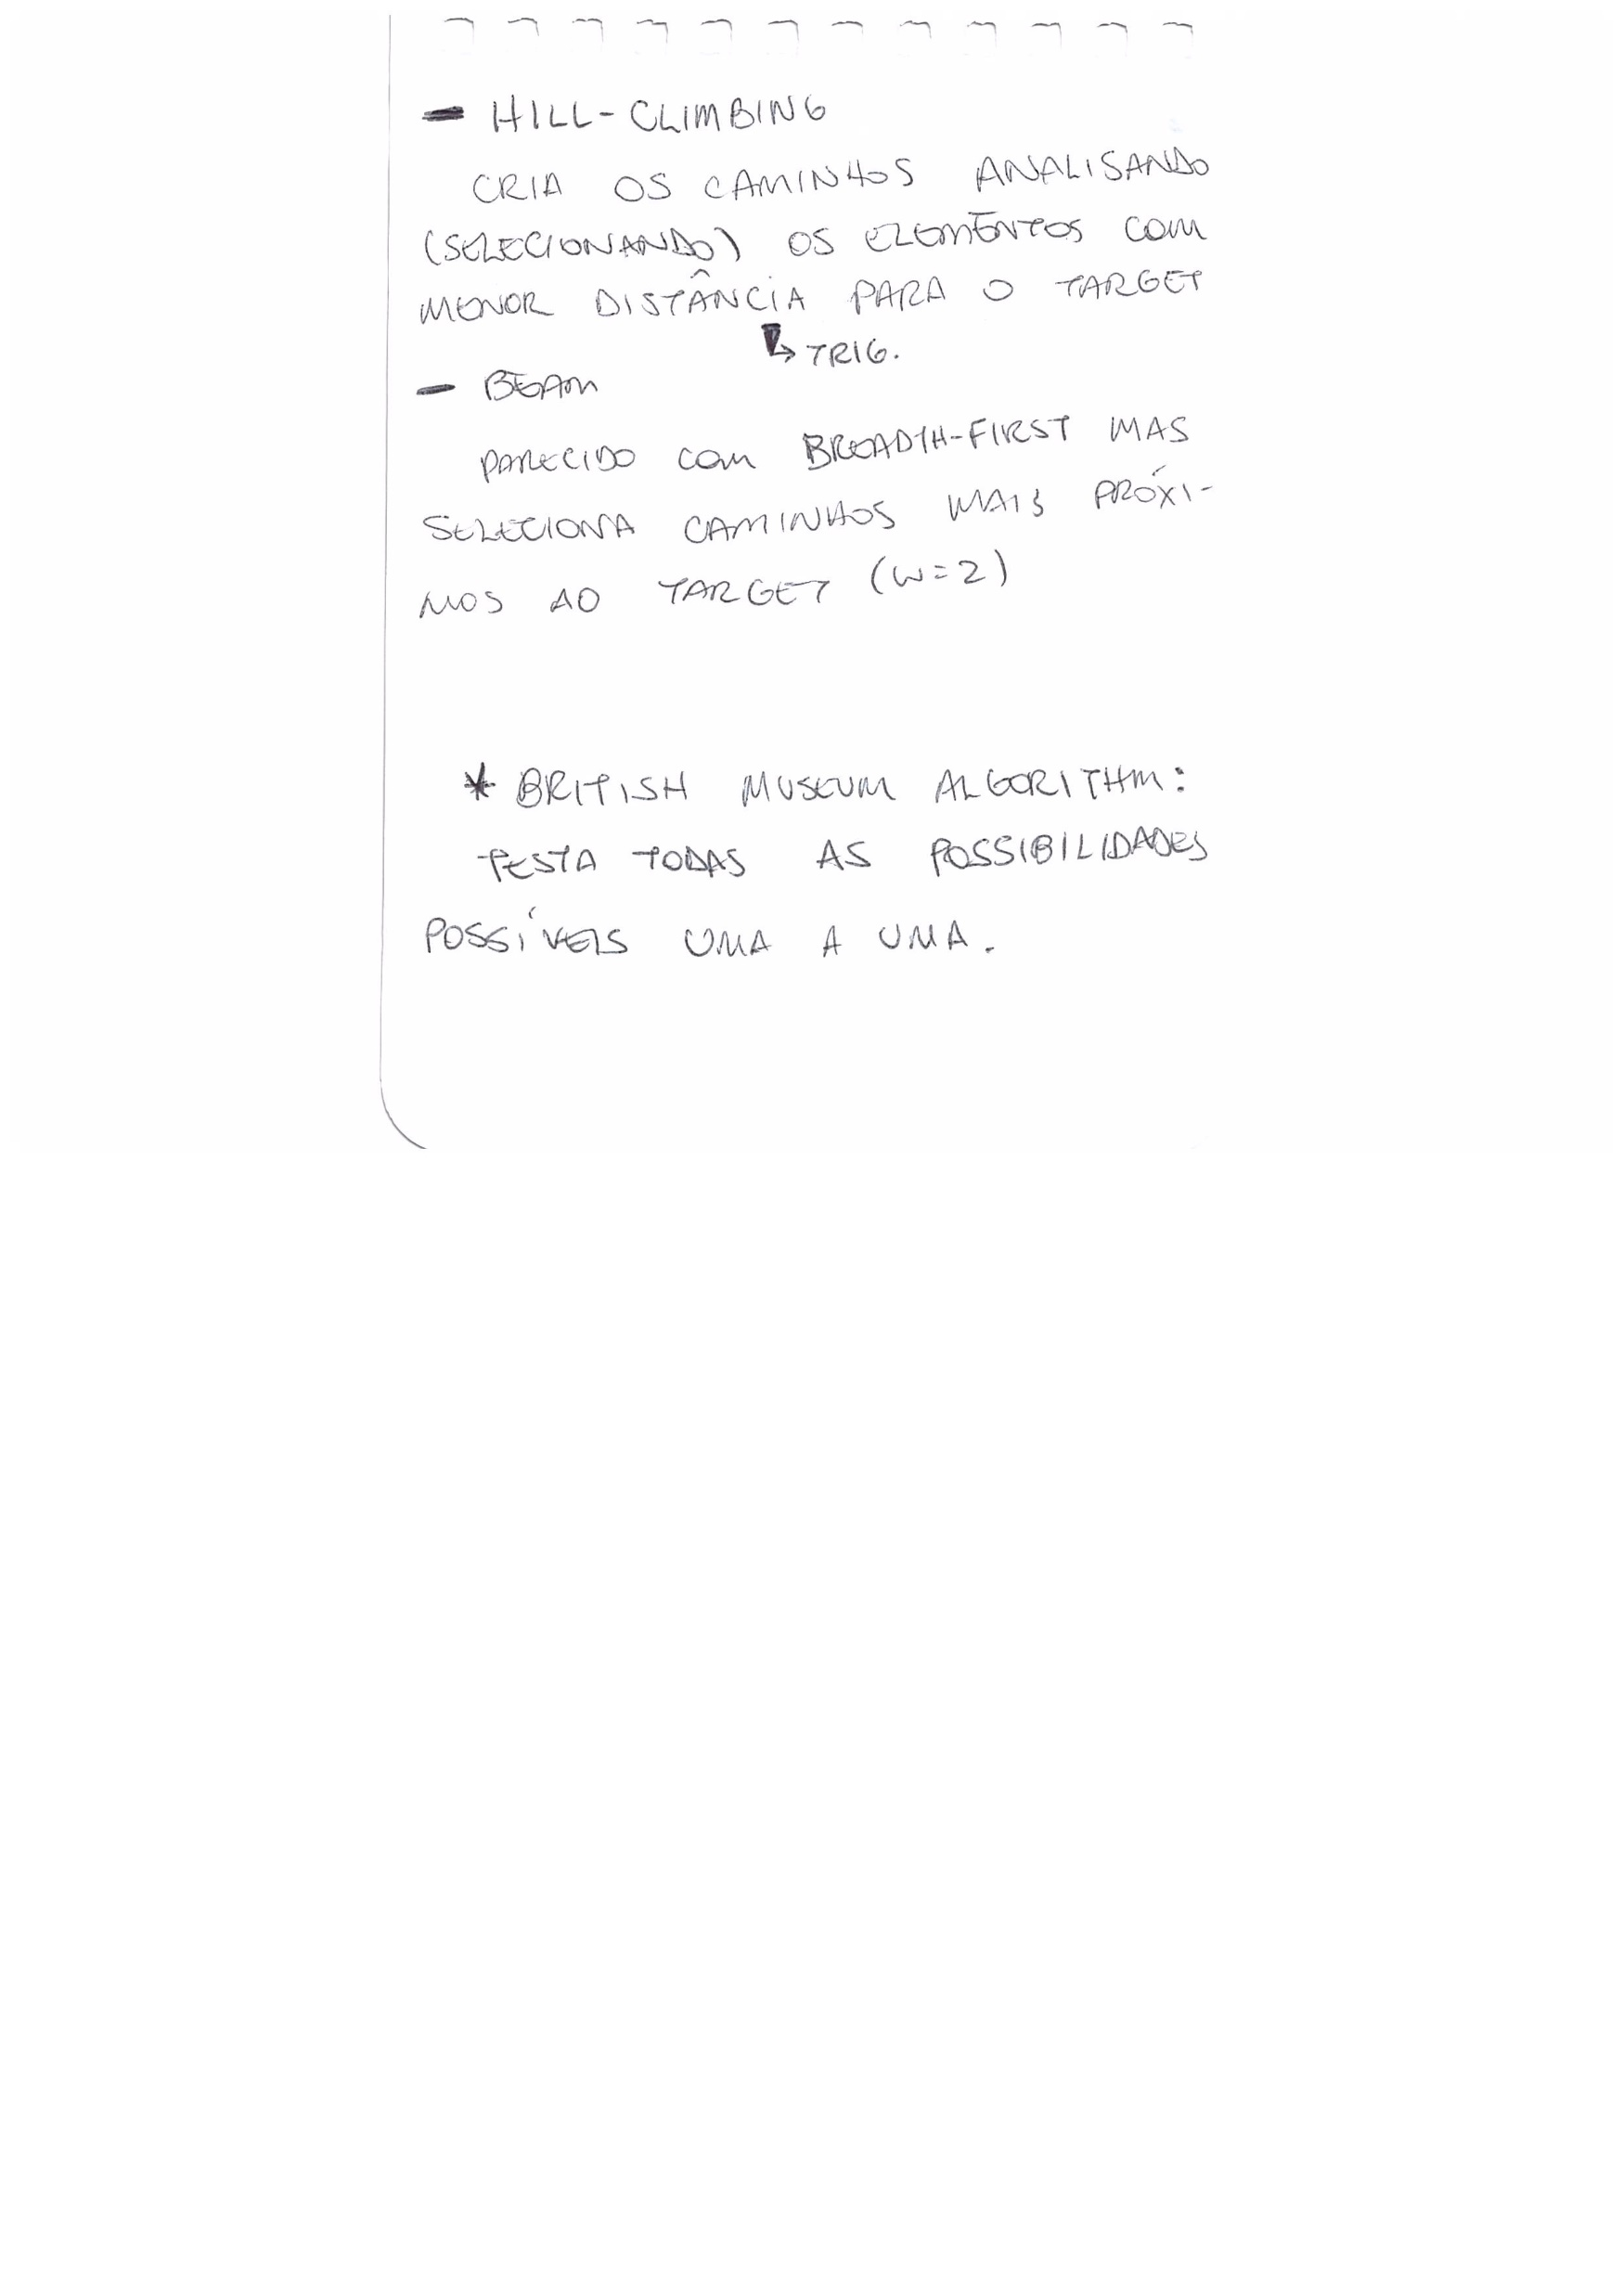 - HILL-CLIMBING
CRIA OS CAMINHOS ANALISANDO
(SELECIONANDO) OS ELEMENTOS COM
MENOR DISTÂNCIA PARA O TARGET
↳ TRIG.
- BEAM
PARECIDO COM BREADTH-FIRST MAS
SELECIONA CAMINHOS MAIS PRÓXI-
MOS AO TARGET (W=2)
* BRITISH MUSEUM ALGORITHM:
TESTA TODAS AS POSSIBILIDADES
POSSÍVEIS UMA A UMA.